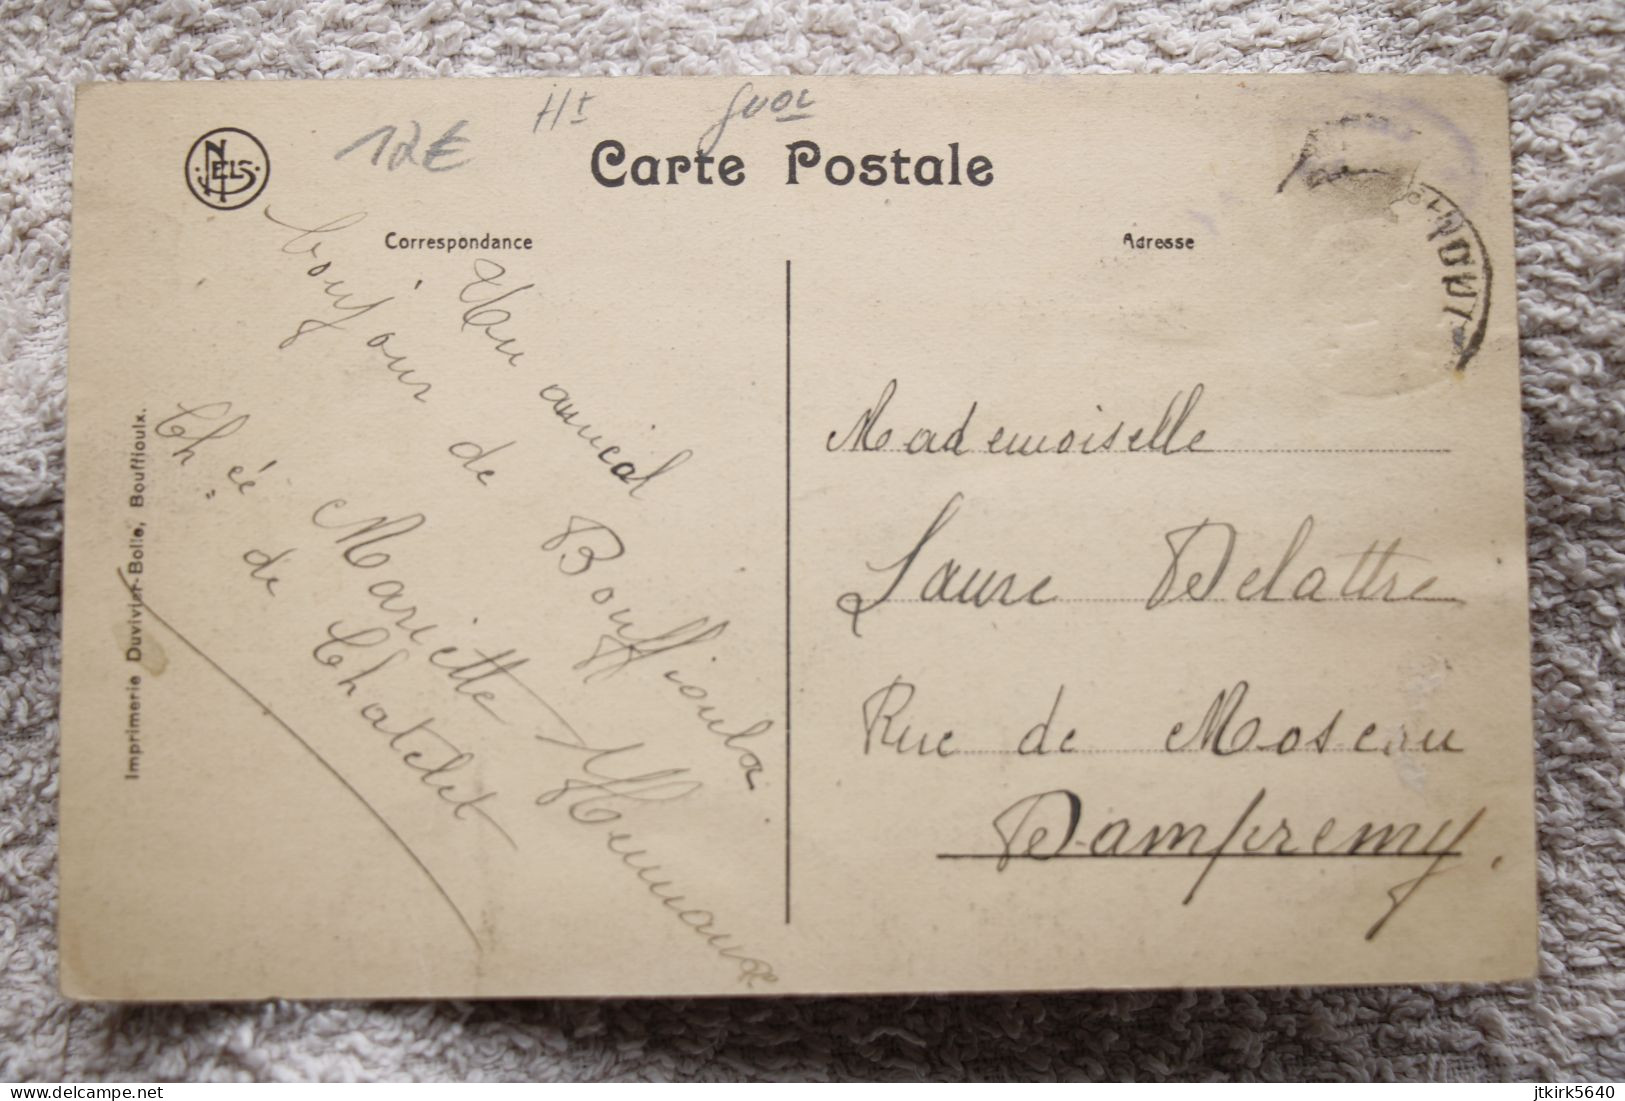 12€
Ht
NELS
Carte Postale
Correspondance
Adresse
Un amical
bonjour de Bouffioulx
Mariette
Ch ée de Chatelet
Mademoiselle
Laure Delattre
Rue de Moseau
Dampremy.
Imprimerie Duvivier-Bolle, Bouffioulx.
delcampe.net
jtkirk5640